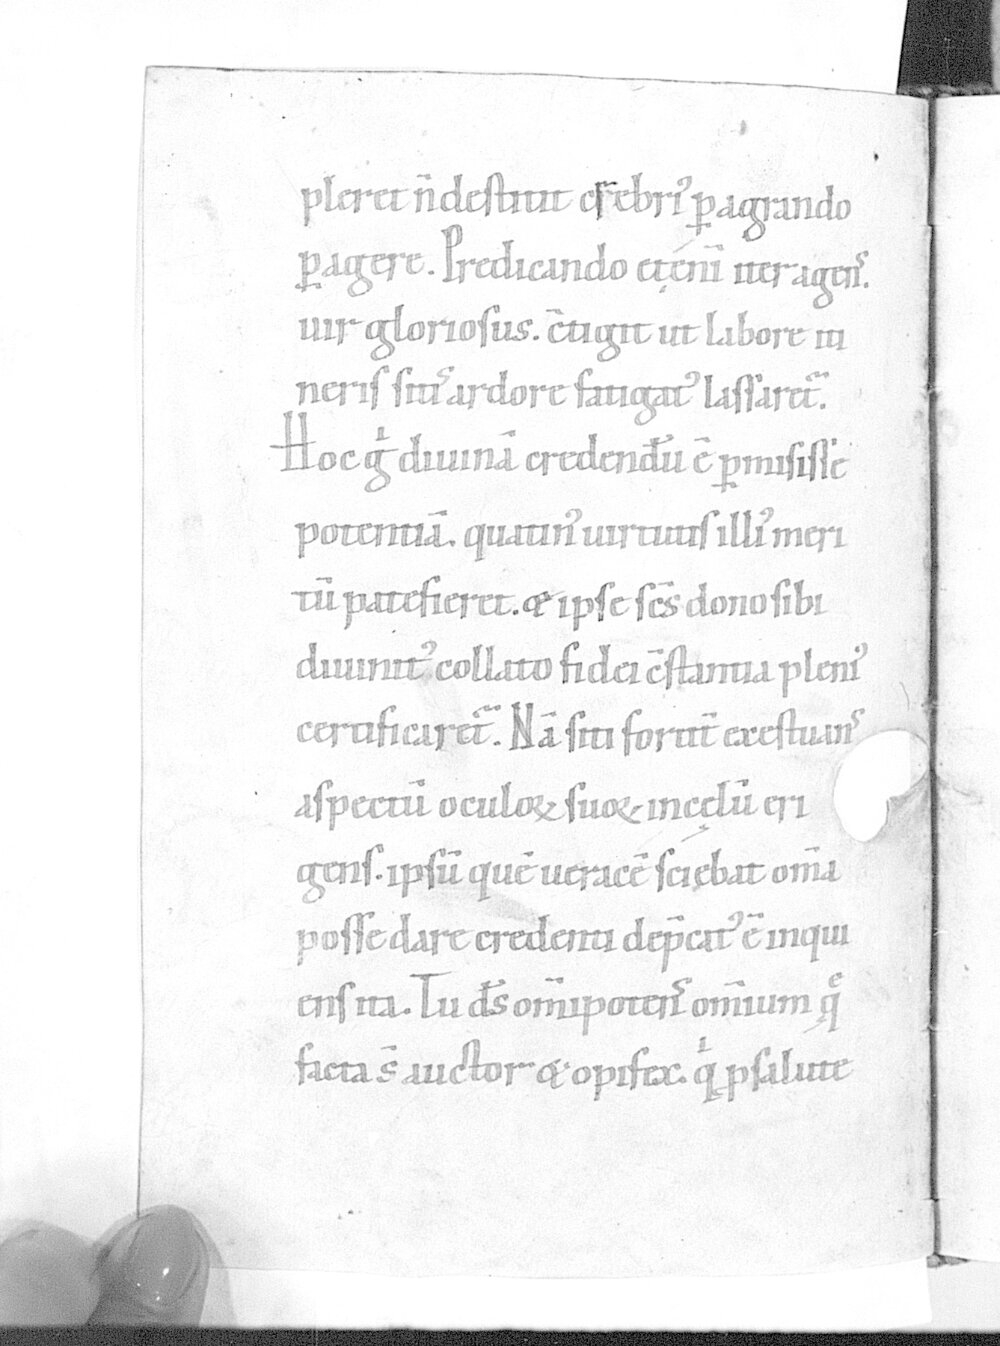 pleret n̄ destitit crebri᷒ ꝑagrando
ꝑagere. Predicando etenī iter agens.
uir gloriosus. c̄tigit ut labore iti
neris siti᷒ ardore fatigat᷒ lassaret᷑.
Hoc gͥ diuinā credendū ē ꝑmisisse
potentiā. quatin᷒ uirtutis illi᷒ meri
tū patefieret. & ipse sc̄s dono sibi
diuinit᷒ collato fidei c̄stantia pleni᷒
certificaret᷑. Nā siti fortit̄ exestuans
aspectū oculoꝝ suoꝝ in cęlū eri
gens. ipsū quē ueracē sciebat om̄a
posse dare credenti dep̄cat᷒ ē inqui
ens ita. Tu ds̄ om̄ipotens om̄ium qͤ
facta s̄ auctor & opifex. qͥ p salute